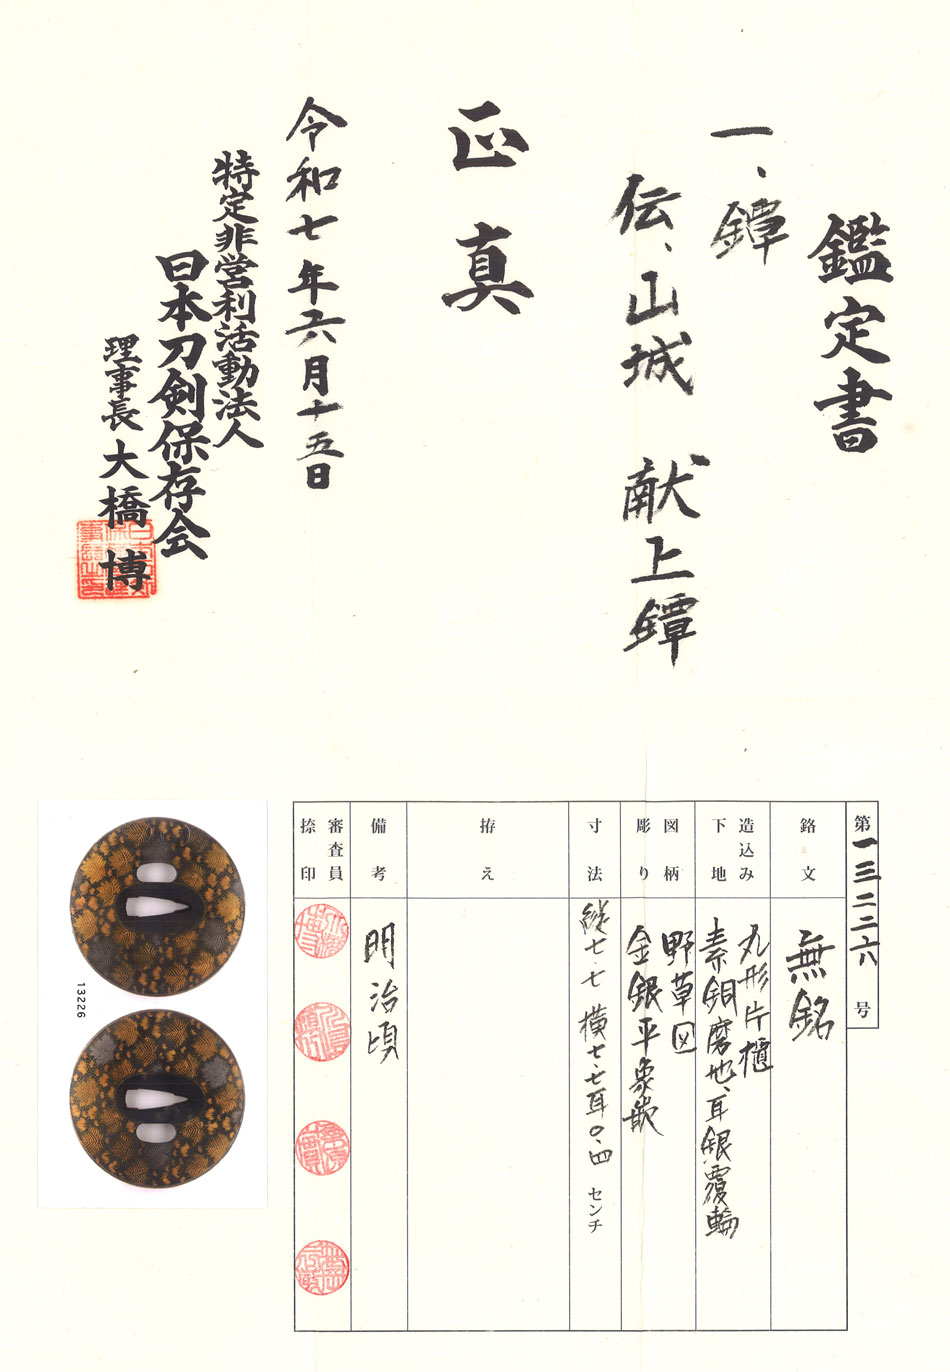 鑑定書
一、鐔
伝、山城 献上鐔
正真
令和七年六月十五日
特定非営利活動法人
日本刀剣保存会
理事長 大橋 博
第一三二二六号
銘文
無銘
造込み
下地
丸形片櫃
素銅磨地、耳銀覆輪
図柄
彫り
野草図
金銀平象嵌
寸法
縦七.七 横七.七耳〇.四 センチ
拵え
備考
明治頃
審査員
捺印
13226